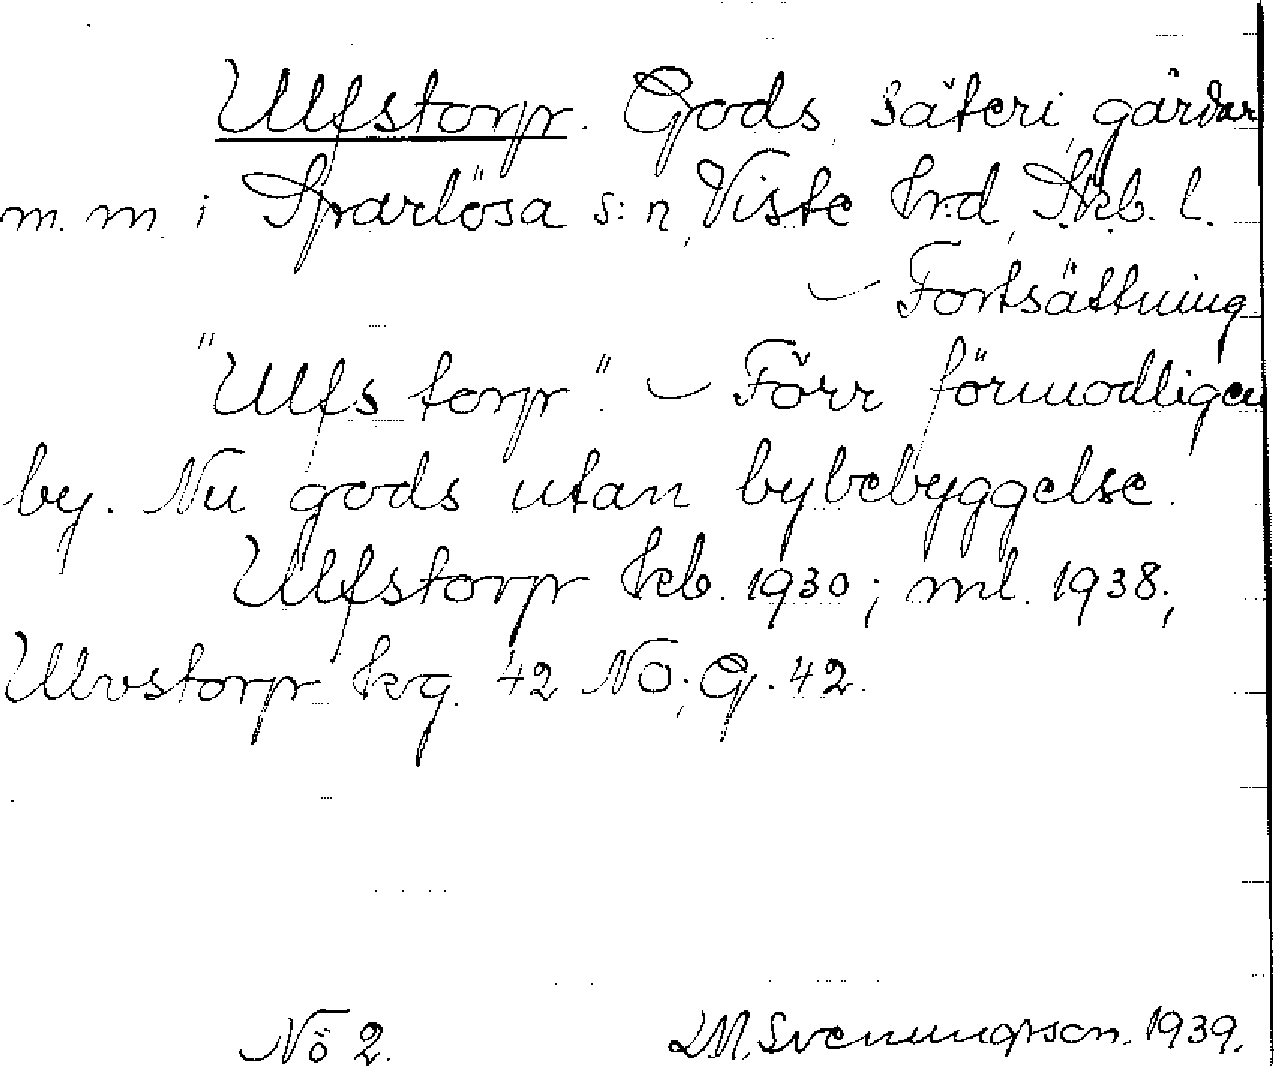 Ulfstorp. Gods, säteri, gårdar
m. m. i Sparlösa s:n, Viste hrd, Skb. l.
– Fortsättning
"Ulfs torp". – Förr förmodligen
by. Nu gods utan bybebyggelse.
Ulfstorp kb. 1930; ml. 1938;
Ulvstorp krg. 42 NO; G. 42.
Nö 2. LM. Svenungsson. 1939.